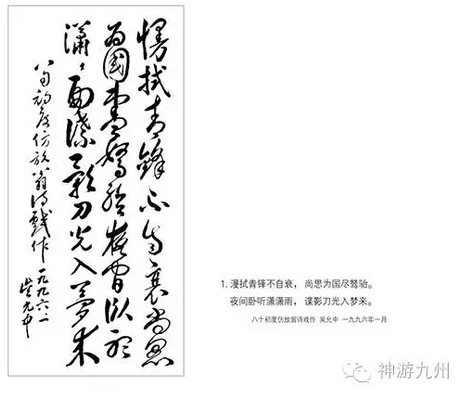 慢拭青鋒不自衰尚思
为國盡駑骀夜间卧听
瀟々雨諜影刀光入夢来
八旬初度仿放翁诗戏作 一九九六.一
吴允中
1. 漫拭青锋不自衰， 尚思为国尽驽骀。
夜间卧听潇潇雨， 谍影刀光入梦来。
八十初度仿放翁诗戏作 吴允中 一九九六年一月
神游九州